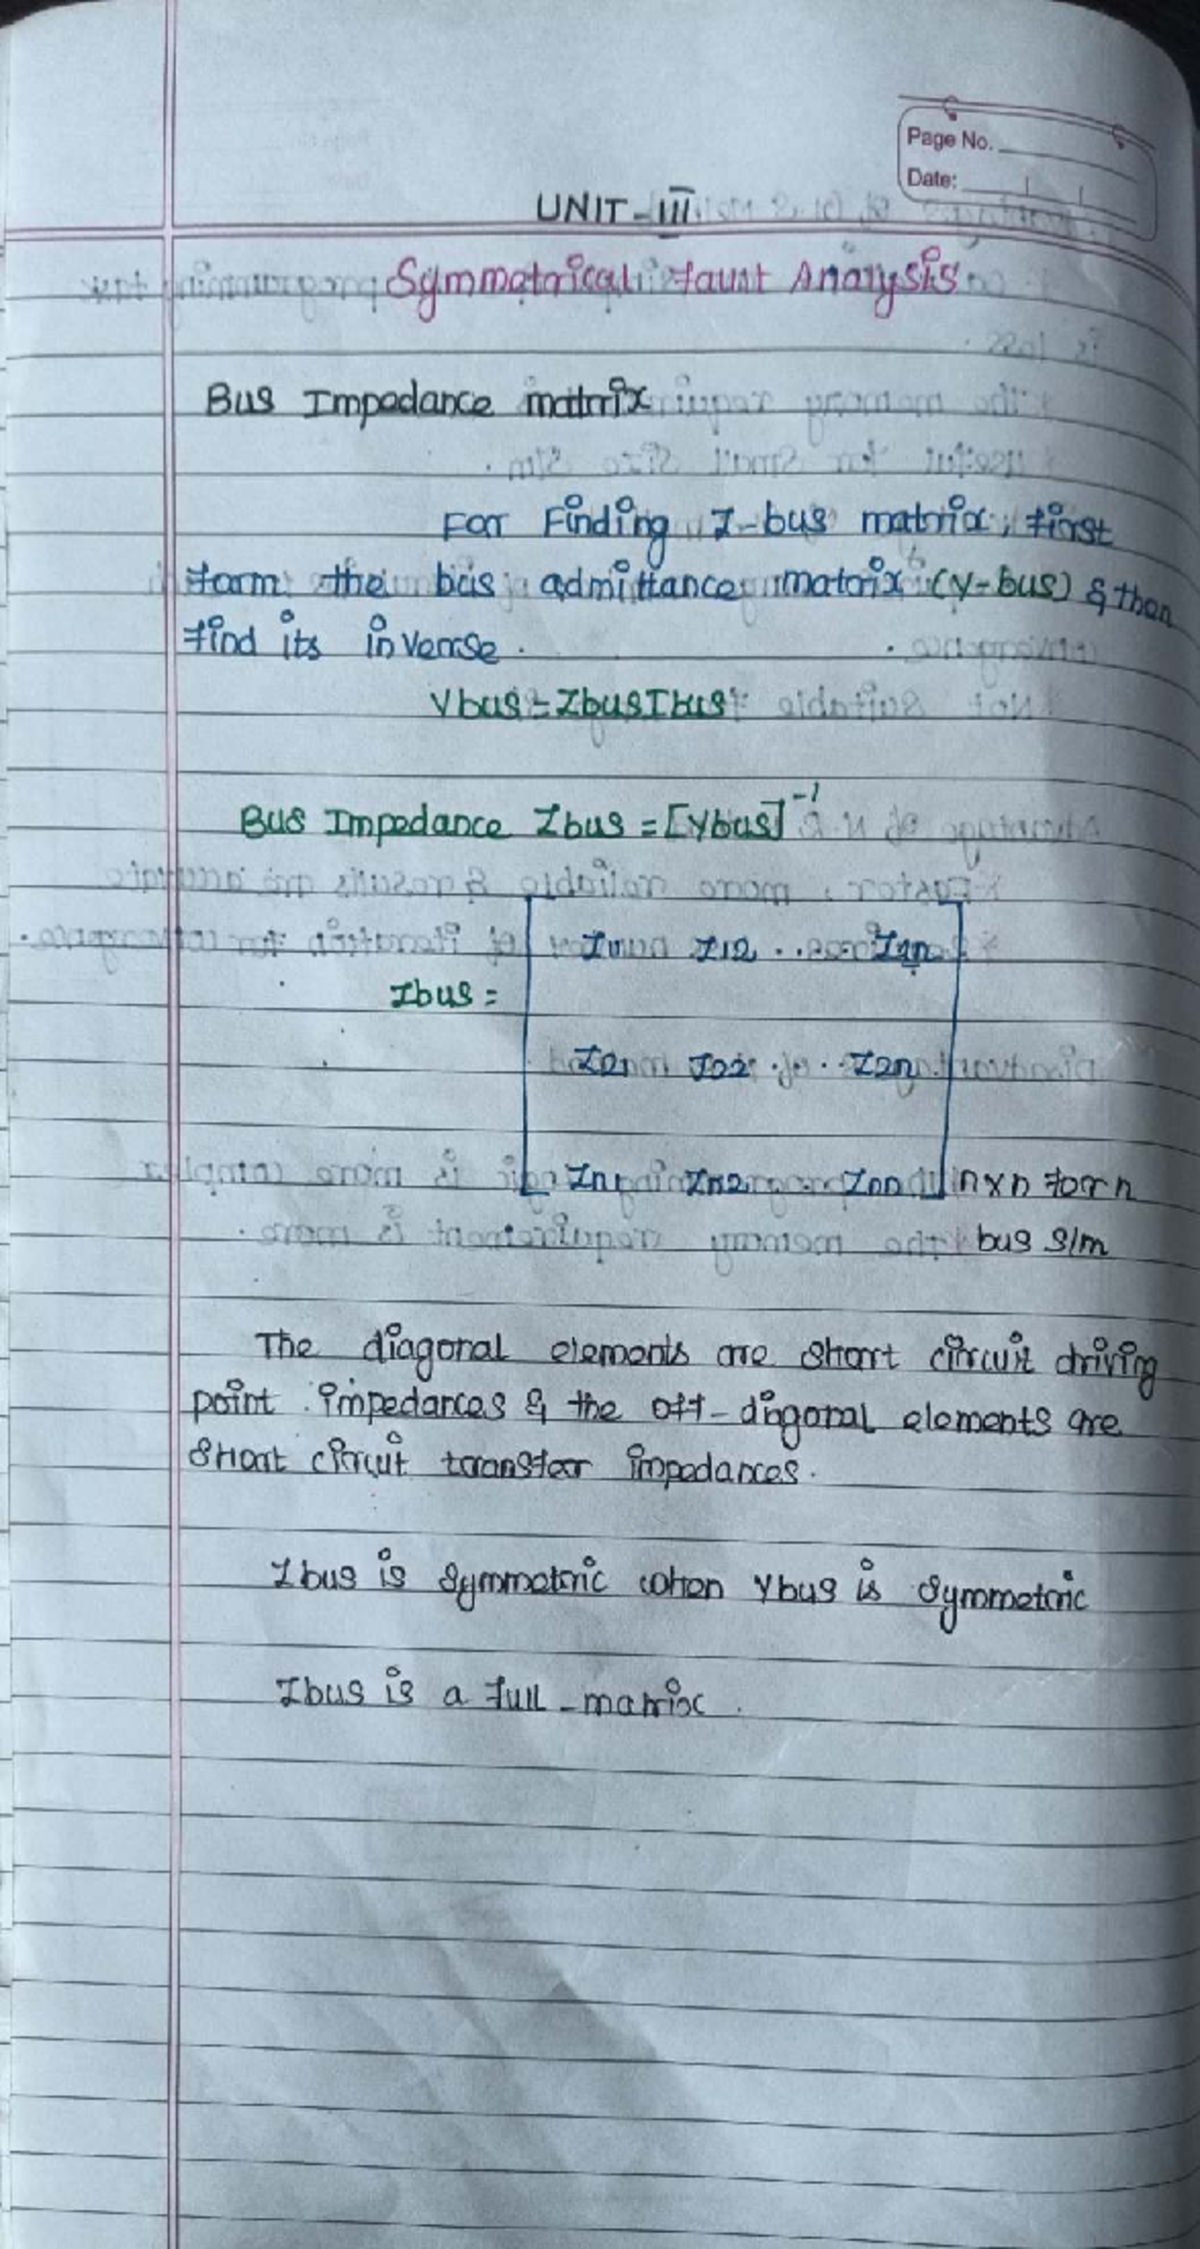 Page No.
Date:
UNIT-III
Symmetrical fault Analysis
Bus Impedance matrix
For Finding Z-bus matrix, first
form the bus admittance matrix (Y-bus) & then
find its inverse.
Vbus = Zbus Ibus
Bus Impedance Zbus = [Ybus]⁻¹
Z11 Z12 ... Z1n
Zbus =
Z21 Z22 ... Z2n
Zn1 Zn2 Znn n×n for n
bus s/m
The diagonal elements are short circuit driving
point impedances & the off-diagonal elements are
short circuit transfer impedances.
Zbus is symmetric when Ybus is symmetric
Zbus is a full-matrix.